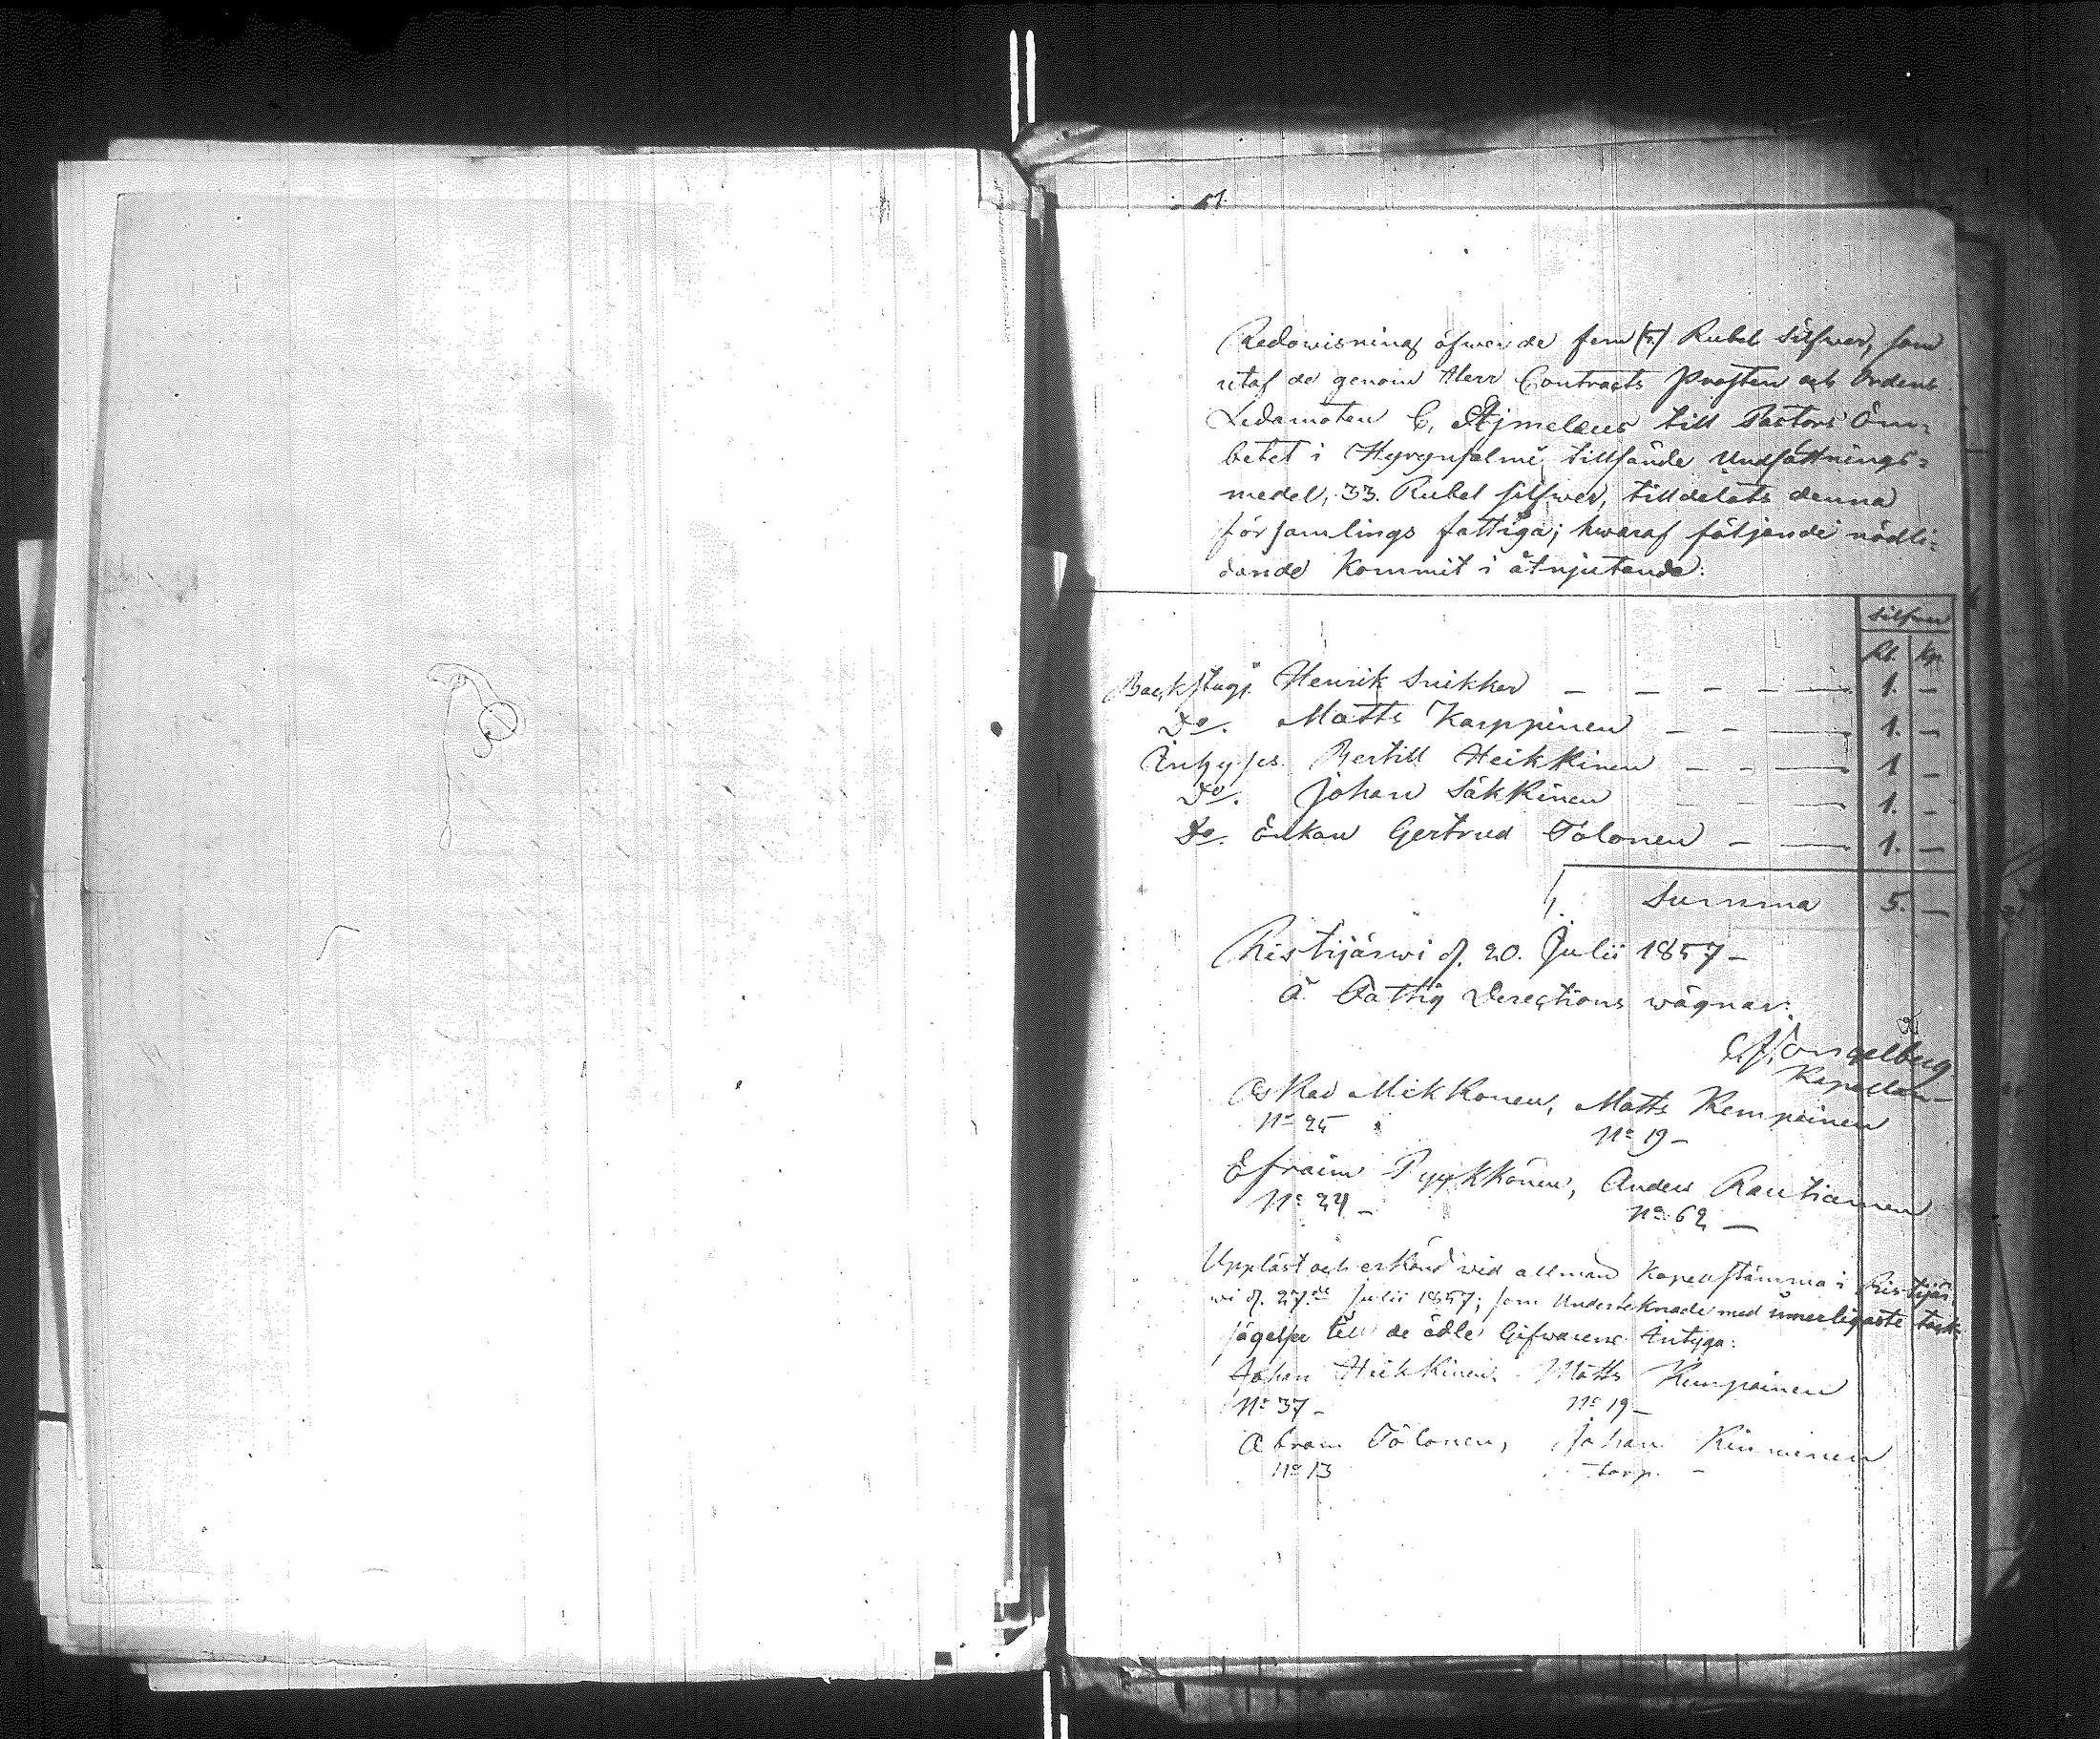 Redowisning öfwer de fem (5.) Rubel Silfwer, som
utaf de genom Herr Contracts Prosten och Ordens
Ledamoten C. Ajmelæus till Pastors Äm-
betet i Hyrynsalmi tillsände Undsättnings-
medel, 33. Rubel silfwer, tilldelats denna
församlings fattiga; hwaraf följande nödli-
dande kommit i åtnjutande:
Silfwer
Rb. Kp.
Backstugs. Henrik Snikker — — — — — 1. —
Do. Matts Karppinen — — — 1. —
Inhyses Bertill Heikkinen — — — 1 —
Do. Johan Säkkinen — — — 1. —
Do. Enkan Gertrud Tolonen — — 1. —
Summa 5. —
Ristijärwi d. 20. Julii 1857 —
Å Fattig Directions wägnar:
Kapellan —
Matts Kemppainen
No 25 No 19 —
Efraim Pyykkönen, Anders Rautiainen
No 24 — No 62 —
Uppläst och erkänd wid allmän Kapellstämma i Ristijär-
wi d. 27de Julii 1857; som Undertecknade med innerligaste tack-
sägelse till de ädle Gifwarene intyga:
Johan Heikkinen, Matts Kemppainen
No 37 — No 19 —
Abram Tolonen, Johan Kinnunen
No 13 torp. —